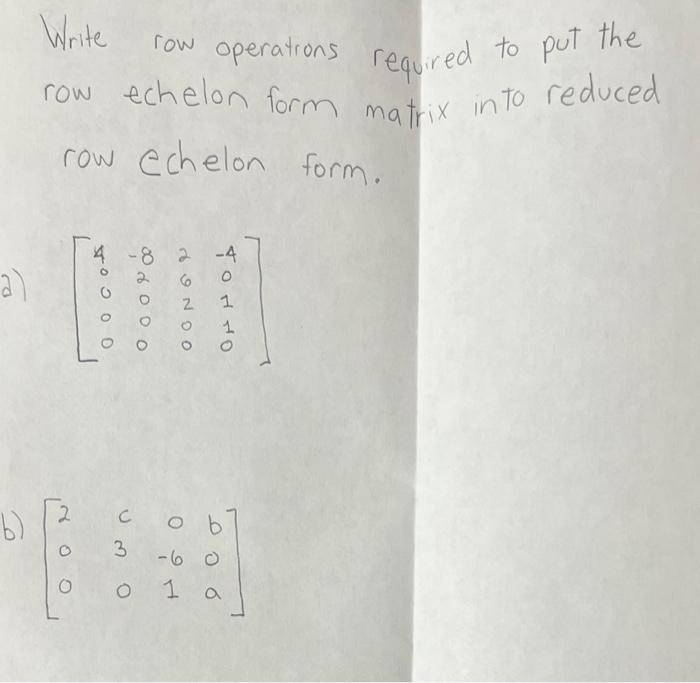 Write row operations required to put the
row echelon form matrix into reduced
row echelon form.
a)
4 -8 2 -4
0 2 6 0
0 0 2 1
0 0 0 1
0 0 0 0
b)
2 c 0 b
0 3 -6 0
0 0 1 a